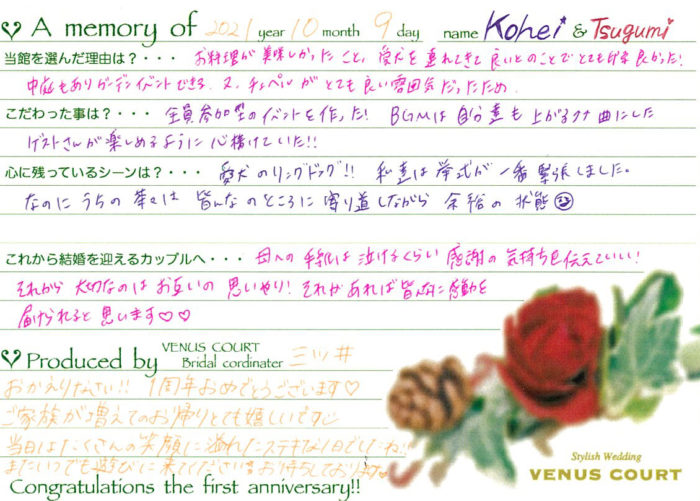 A memory of 2021 year 10 month 9 day name Kohei & Tsugumi
当館を選んだ理由は？・・・ お料理が美味しかったこと、愛犬を連れてきて良いとのことでとても
中庭もありガーデンイベントできる 又、チャペルがとても良い雰囲気だったため
こだわった事は？・・・ 全員参加型のイベントを作った! BGMは自分達も上がる 曲にした
ゲストさんが楽しめるように心掛けていた!!
心に残っているシーンは？・・・ 愛犬のリングドッグ!! 私達は挙式が一番緊張しました。
なのにうちの 皆んなのところに寄り道しながら 余裕の状態
これから結婚を迎えるカップルへ・・・ 母への手紙は泣けるくらい感謝の気持ちを伝えていい!
それから大切なのはお互いの思いやり! それがあれば皆んなに感動を
届けられると思います♡♡
Produced by VENUS COURT Bridal cordinater 三ツ井
おかえりなさい!! 1周年おめでとうございます♡
ご家族が増えてのお帰りとても嬉しいです
当日はたくさんの笑顔に溢れたステキな1日でしたね!!
またいつでも遊びに来てくださいお待ちしております
Congratulations the first anniversary!!
Stylish Wedding
VENUS COURT